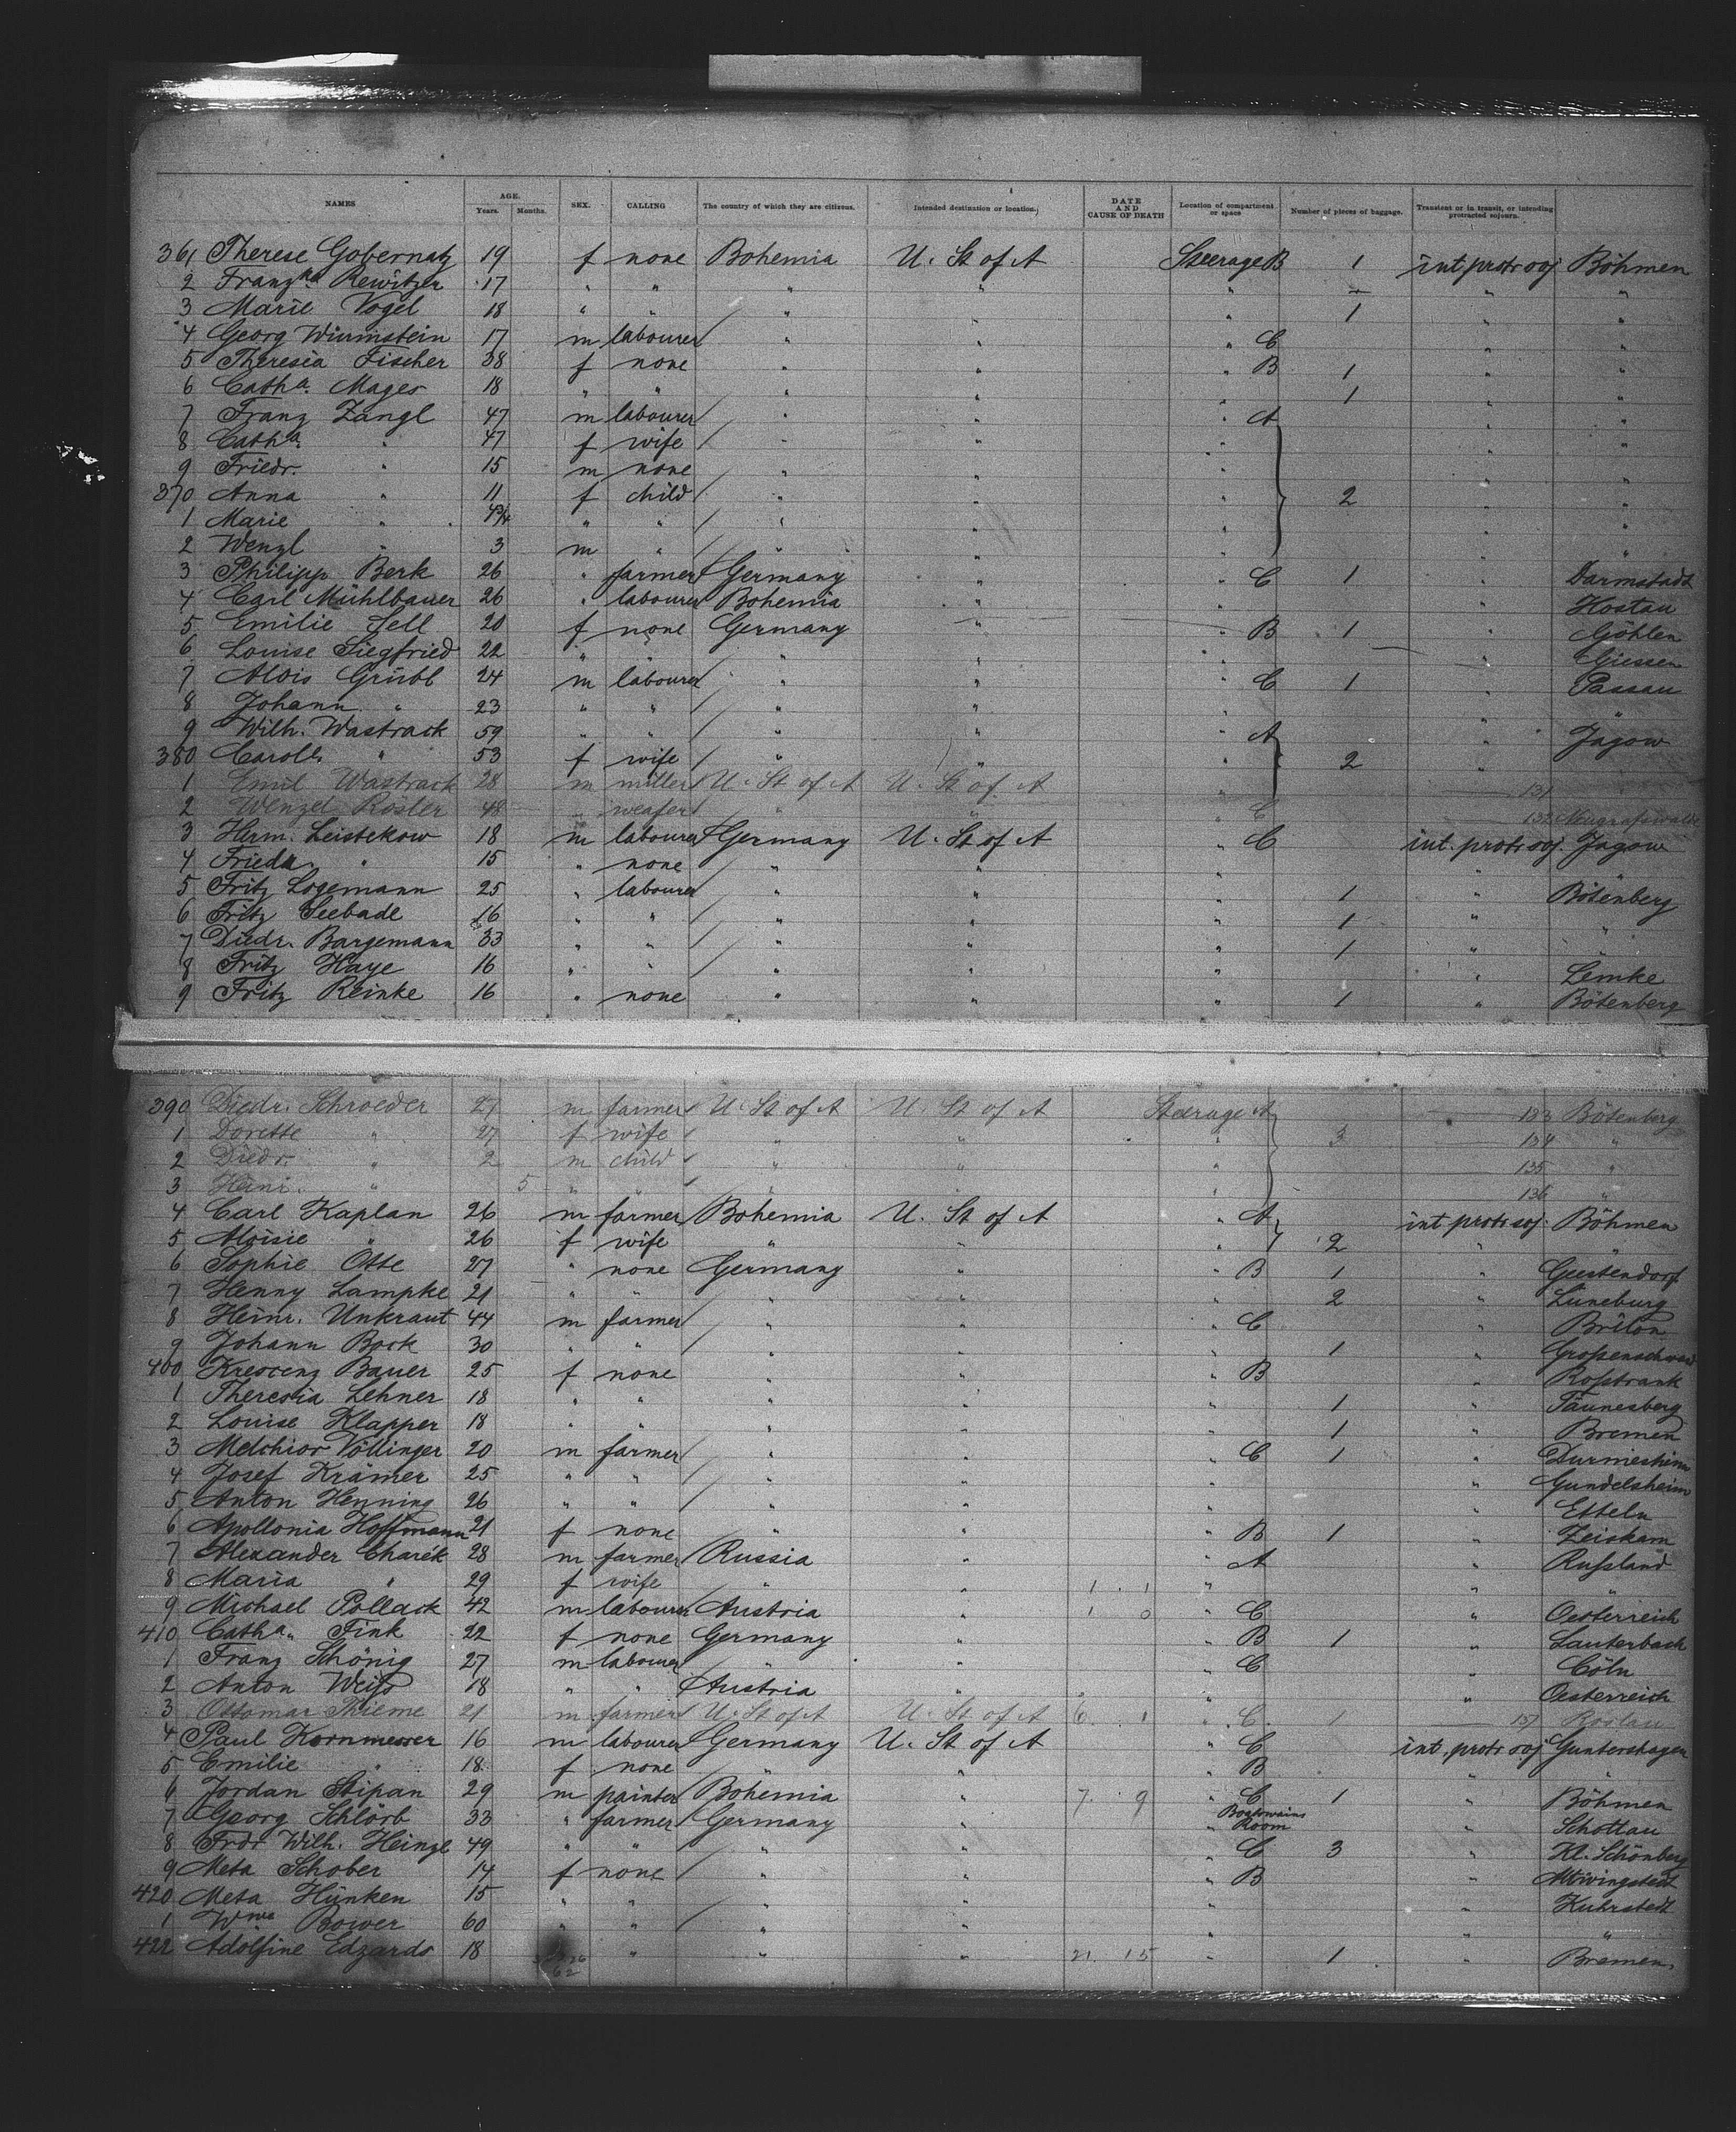 NAMES AGE. Years. Months. SEX. CALLING The country of which they are citizens. Intended destination or location. DATE AND CAUSE OF DEATH Location of compartment or space Number of pieces of baggage. Transient or in transit, or intending protracted sojourn.
361 Therese Gobernatz 19 f none Bohemia U. St of A Steerage B 1 int protr soj Böhmen
2 Franzka Rewitzer 17 " " " " " " "
3 Marie Vogel 18 " " " " " 1 " "
4 Georg Wirmstein 17 m labourer " " " C " "
5 Theresia Fischer 38 f none " " " B 1 " "
6 Catha. Mages 18 " " " " " 1 " "
7 Franz Zangl 47 m labourer " " " A " "
8 Catha. " 47 f wife " " " " "
9 Friedr. " 15 m none " " " " "
370 Anna " 11 f child " " " 2 " "
1 Marie " 4¾ " " " " " " "
2 Wenzl " 3 m " " " " " "
3 Philipp Berk 26 " farmer Germany " " C 1 " Darmstadt
4 Carl Mühlbauer 26 " labourer Bohemia " " " Hostau
5 Emilie Sell 20 f none Germany " " B 1 " Göhlen
6 Louise Siegfried 22 " " " " " " Giessen
7 Alois Grübl 24 m labourer " " " C 1 " Passau
8 Johann " 23 " " " " " "
9 Wilh. Wastrack 59 " " " " " A " Jagow
380 Carol. " 53 f wife " " " 2 " "
1 Emil Wastrack 28 m miller U. St of A U. St of A " 131 "
2 Wenzel Rösler 48 " weafer " " " C 132 Neugrafswalde
3 Herm. Leistekow 18 m labourer Germany U. St of A " C int. protr soj. Jagow
4 Friedr. " 15 " none " " " " "
5 Fritz Logemann 25 " labourer " " " 1 " Bötenberg
6 Fritz Seebade 16 " " " " " 1 " "
7 Diedr. Bargemann 33 " " " " " 1 " "
8 Fritz Haye 16 " " " " " " Lemke
9 Fritz Reinke 16 " none " " " 1 " Bötenberg
390 Diedr. Schroeder 27 m farmer U. St of A U. St of A Steerage A 133 Bötenberg
1 Dorette " 27 f wife " " " 3 134 "
2 Diedr. " 2 m child " " " 135 "
3 Heinr. " 5 " " " " " 136 "
4 Carl Kaplan 26 m farmer Bohemia U. St of A " A int protr soj. Böhmen
5 Aloisie " 26 f wife " " " 2 " "
6 Sophie Otte 27 " none Germany " " B 1 " Geestendorf
7 Henny Lampke 21 " " " " " 2 " Lüneburg
8 Heinr. Unkraut 44 m farmer " " " C " Brilon
9 Johann Bock 30 " " " " " 1 "
400 Krescenz Bauer 25 f none " " " B " Roßtrank
1 Theresia Lehner 18 " " " " " 1 " Tännesberg
2 Louise Klapper 18 " " " " " 1 " Bremen
3 Melchior Völlinger 20 m farmer " " " C 1 " Durmesheim
4 Josef Krämer 25 " " " " " " Gundelsheim
5 Anton Henning 26 " " " " " " Etteln
6 Apollonia Hoffmann 21 f none " " " B 1 " Zeiskam
7 Alexander Charék 28 m farmer Russia " " A " Rußland
8 Maria " 29 f wife " " 1 1 " " "
9 Michael Pollack 42 m labourer Austria " 1 0 " C " Oesterreich
410 Catha. Fink 22 f none Germany " " B 1 " Lauterbach
1 Franz Schönig 27 m labourer " " " C " Cöln
2 Anton Weiß 18 " " Austria " " " Oesterreich
3 Ottomar Thieme 21 m farmer U. St of A U. St of A 6 1 " C 1 137
4 Paul Kornmesser 16 m labourer Germany U. St of A " C int. protr soj. Guntershagen
5 Emilie " 18 f none " " " B " "
6 Jordan Stipan 29 m painter Bohemia " 7 9 " C 1 " Böhmen
7 Georg Schlörb 33 " farmer Germany " " Boatswains Room " Schottau
8 Frdr Wilh. Heinze 49 " " " " " C 3 " Kl. Schönberg
9 Meta Schober 14 f none " " " B "
420 Meta Hünken 15 " " " " " " Kuhrstedt
1 Wme Bower 60 " " " " " " "
422 Adolfine Edzards 18 " " " 21 15 " 1 " Bremen.